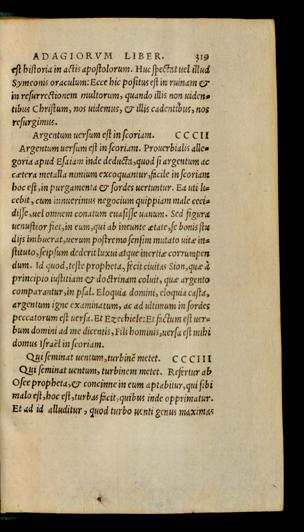 ADAGIORVM LIBER. 319
est historia in actis apostolorum. Huc spectat uel illud
Symeonis oraculum: Ecce hic positus est in ruinam &
in resurrectionem multorum, quando illis non uiden-
tibus Christum, nos uidemus, & illis cadentibus, nos
resurgimus.
Argentum uersum est in scoriam. CCCII
Argentum uersum est in scoriam. Prouerbialis alle-
goria apud Esaiam inde deducta, quod si argentum ac
cætera metalla nimium excoquantur, facile in scoriam
hoc est, in purgamenta & sordes uertuntur. Ea uti li-
cebit, cum innuerimus negocium quippiam male ceci-
disse, uel omnem conatum euasisse uanum. Sed figura
uenustior fiet, in eum, qui ab ineunte ætate, se bonis stu
dijs imbuerat, uerum postremo sensim mutato uitæ in-
stituto, seipsum dederit luxui atque inertiæ corrumpen
dum. Id quod, teste propheta, fecit ciuitas Sion, quæ à
principio iustitiam & doctrinam coluit, quæ argento
comparantur, in psal. Eloquia domini, eloquia casta,
argentum igne examinatum, ac ad ultimum in sordes
peccatorum est uersa. Et Ezechiele: Et factum est uer-
bum domini ad me dicentis, Fili hominis, uersa est mihi
domus Israël in scoriam.
Qui seminat uentum, turbinē metet. CCCIII
Qui seminat uentum, turbinem metet. Refertur ab
Osee propheta, & concinne in eum aptabitur, qui sibi
malo est, hoc est, turbas ficit, quibus inde opprimatur.
Et ad id alluditur, quod turbo uenti genus maximas